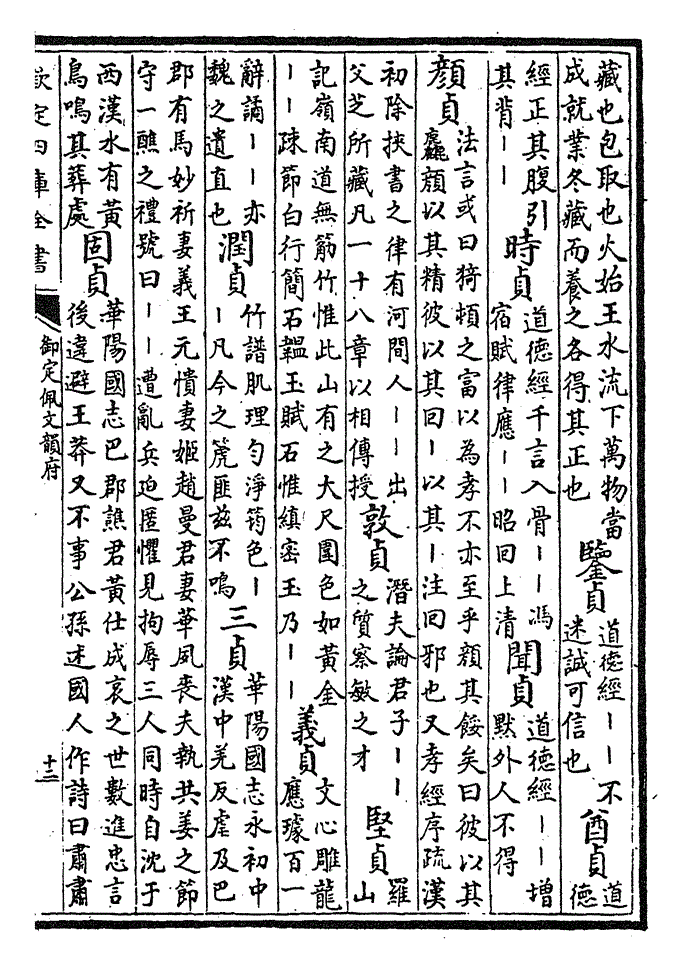 藏也包取也火始王水流下萬物當
成就業冬藏而養之各得其正也
鑒貞
道德經丨丨不
迷誠可信也
酋貞
道
德
經正其腹引
其背丨丨
時貞
道德經千言入骨丨丨馮
宿賦律應丨丨昭回上清
聞貞
道德經丨丨增
默外人不得
顏貞
法言或曰猗頓之富以為孝不亦至乎顏其餒矣曰彼以其
麤顏以其精彼以其回丨以其丨注回邪也又孝經序疏漢
初除挾書之律有河間人丨丨出
父芝所藏凡一十八章以相傳授
敦貞
潛夫論君子丨丨
之質察敏之才
堅貞
羅
山
記嶺南道無筋竹惟此山有之大尺圍色如黃金
丨丨疎節白行簡石韞玉賦石惟縝密玉乃丨丨
義貞
文心雕龍
應璩百一
辭譎丨丨亦
魏之遺直也
潤貞
竹譜肌理勻淨筠色丨
丨凡今之箎匪兹不鳴
三貞
華陽國志永初中
漢中羌反虐及巴
郡有馬妙祈妻義王元憒妻姬趙曼君妻華夙喪夫執共姜之節
守一醮之禮號曰丨丨遭亂兵迫匿懼見拘辱三人同時自沈于
西漢水有黃
鳥鳴其葬處
固貞
華陽國志巴郡譙君黃仕成哀之世數進忠言
後違避王莽又不事公孫述國人作詩曰肅肅
欽定四庫全書
御定佩文韻府
十三